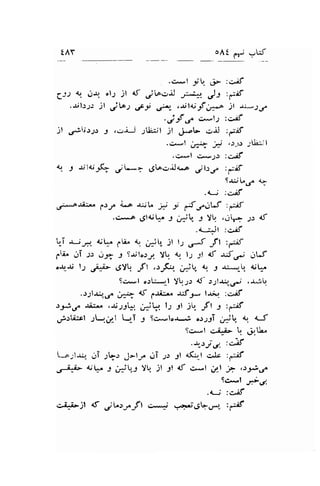 کتاب نهم ۵۸٤ ٤٨٣
گفت: حق با تو است.
گفتم: ولی بیشتر لذت‌هائی که از راه بدن به روح
می‌رسند از همین گونه‌اند، یعنی نوعی رهائی از دردند.
گفت: راست می‌گوئی.
گفتم: لذت حاصل از انتظار لذت، و درد ناشی از
انتظار درد، نیز چنین است.
گفت: درست است.
گفتم: می‌دانی همه لذت‌های جسمانی چگونه‌اند و به
چه می‌مانند؟
گفت: نه.
گفتم: گمان می‌کنم تو نیز مانند همه مردم معتقد هستی
که در جهان، بالا و پائین و میانه‌ای هست.
گفت: البته.
گفتم: اگر کسی را از پائین به مقام میانه ببرند آیا
گمان نمی‌کند که او را به بالا برده‌اند؟ و چون در آن مقام
میانه بایستد و به پائین بنگرد، اگر بالای حقیقی را ندیده
باشد، نمی‌پندارد که در بالا ایستاده است؟
گفت: بخدا سوگند معتقدم که چنین می‌پندارد.
گفتم: و اگر او را از بالا به پائین بیاورند، معتقد می‌شود
که به پائین آورده شده‌است؟ و آیا این‌بار اعتقادش
مطابق با حقیقت است؟
گفت: بی‌تردید.
گفتم: علت اینکه او در آن مراحل دچار آن پندارها
می‌شود، جز این است که او از بالا و پائین و میانه حقیقی
بی‌خبر است؟
گفت: نه.
گفتم: پس جای تعجب نیست اگر مردمانی که از حقیقت